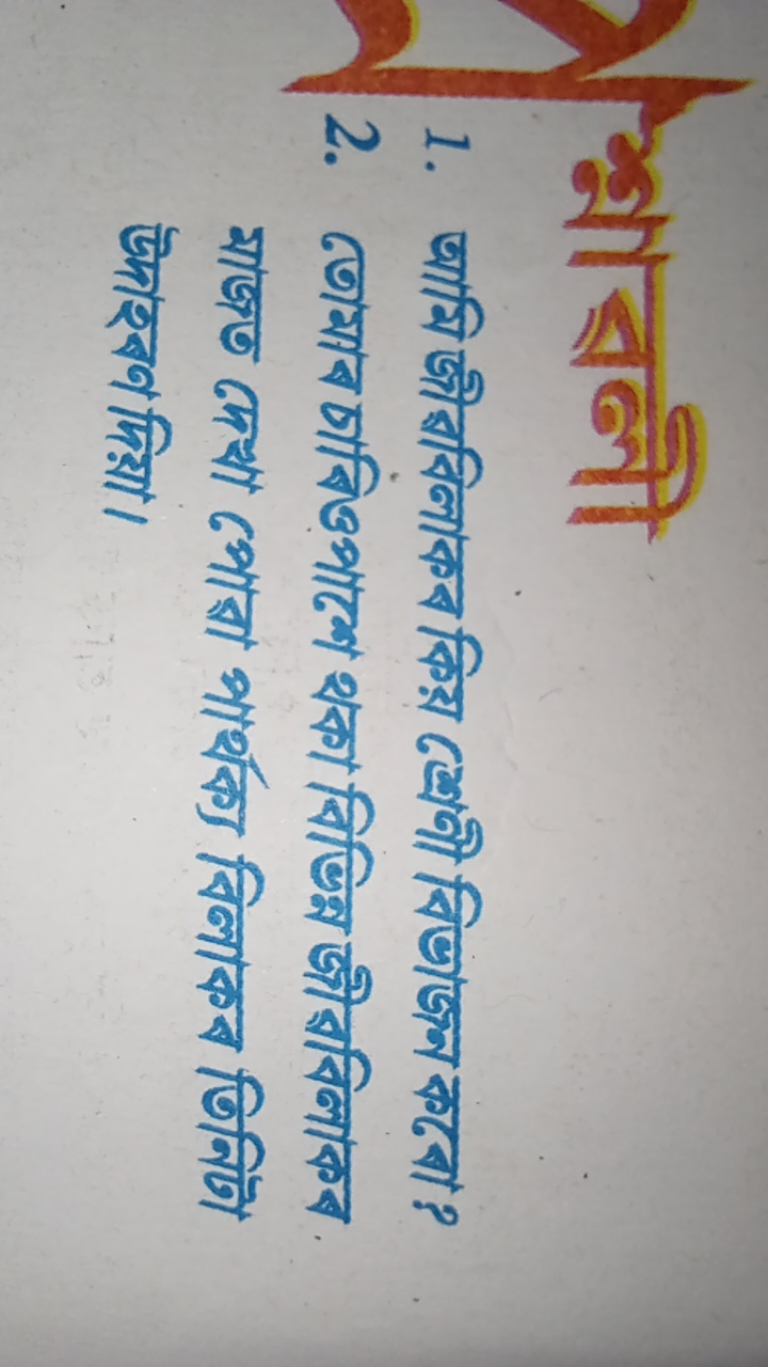 প্ৰশ্নাৱলী
1. আমি জীৱবিলাকৰ কিয় শ্ৰেণী বিভাজন কৰোঁ?
2. তোমাৰ চাৰিওপাশে থকা বিভিন্ন জীৱবিলাকৰ
মাজত দেখা পোৱা পাৰ্থক্য বিলাকৰ তিনিটা
উদাহৰণ দিয়া।